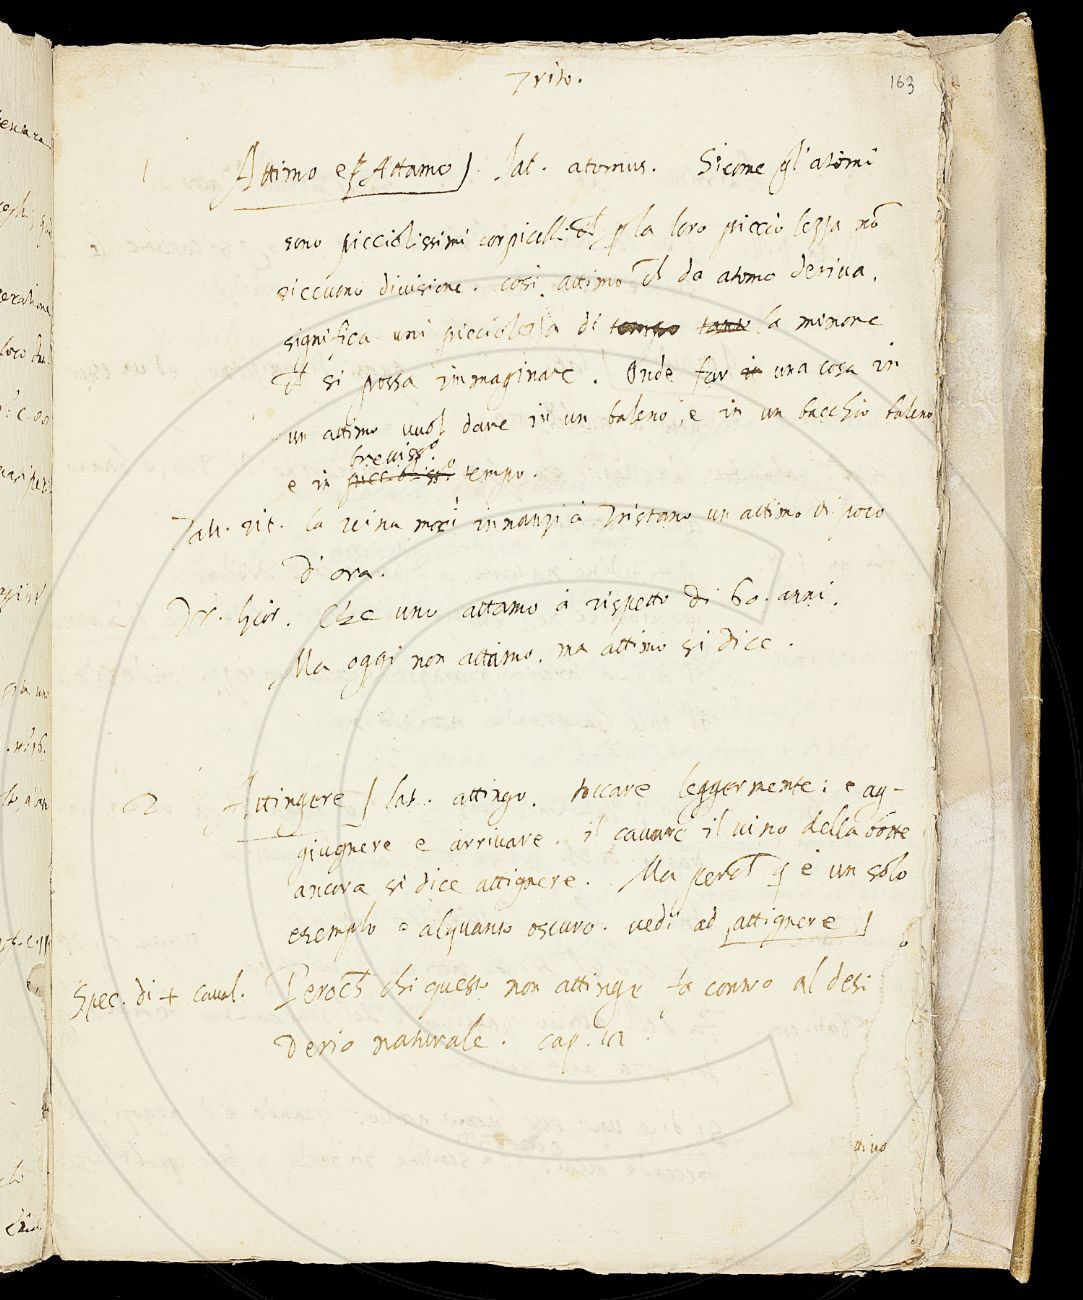 Trito.
163
1 Attimo et Attamo] lat. atomus. Sicome gl'atomi
sono picciolissimi corpicelli la loro picciolezza nō
riccuono diuisione. cosi attimo da atomo deriua.
significa una picciolezza di tempo tanto la minore
si possa immaginare. Onde far una cosa in
un attimo vuol dare in un baleno, e in un bacchio baleno
breuissᵒ
e in tempo.
Tau. rit. la reina morì innanzi à Tristano un attimo di poco
d'ora.
Che uno attamo à rispetto di 60. anni.
Ma oggi non attamo. ma attimo si dice.
2 Attingere] lat. attingo. toccare leggermente: e ag-
giugnere e arriuare. il cauare il uino della botte
ancora si dice attignere. Ma è un solo
esemplo e alquanto oscuro. uedi ad attignere]
Spec. di + caual. chi questo non attinge fa contro al desi
derio naturale. cap.